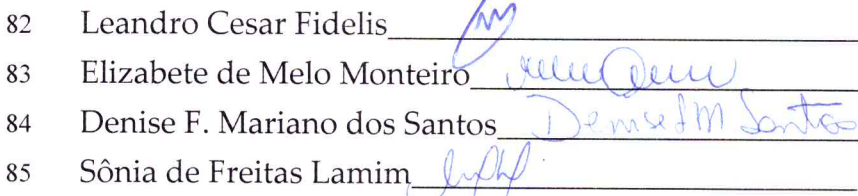 82 Leandro Cesar Fidelis
83 Elizabete de Melo Monteiro
84 Denise F. Mariano dos Santos Denise F M Santos
85 Sônia de Freitas Lamim